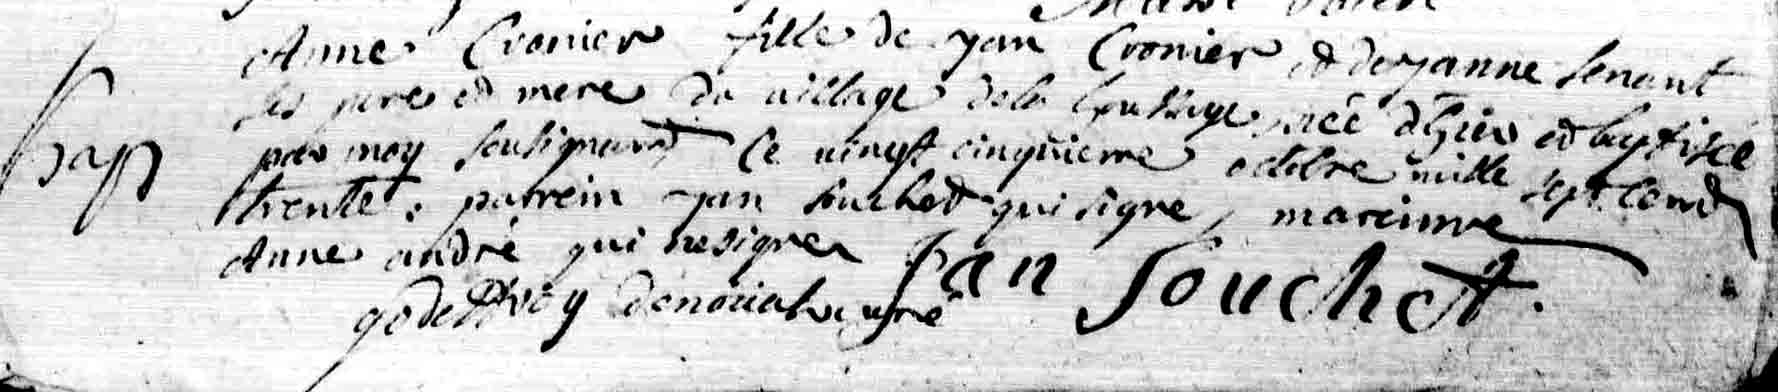 bap
Anne Cronier fille de yan Cronier et de yanne senant
ses pere et mere du village dela née d'hier et baptisée
par moy soussignant Ce vingt cinquieme octobre mille sept cend
trente. parrein yan souchet qui signe, mareinne
Anne andré qui ne signe Jan Souchet.
godeffroy curé